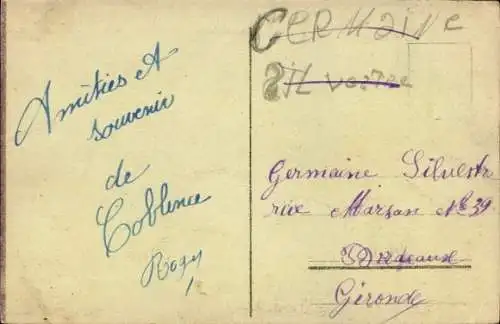 Amitiés et
souvenir
de
Coblence
Rogy
GERMAINE
SIL vestre
Germaine Silvestre
rue Marsan No 39
Bordeaux
Gironde